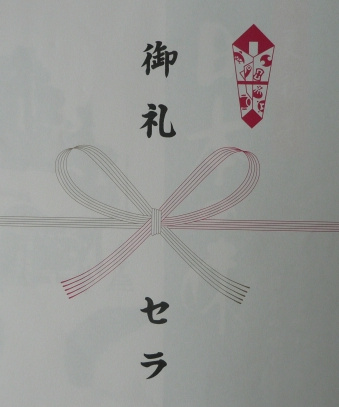 御礼
セラ